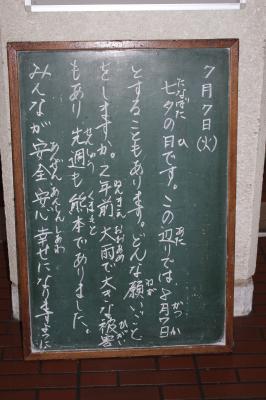 7月7日(火)
七夕の日です。この辺りでは8月7日
とすることもあります。どんな願いごと
をしますか。2年前大雨で大きな被害
もあり先週も熊本でありました。
みんなが安全安心幸せになりますように